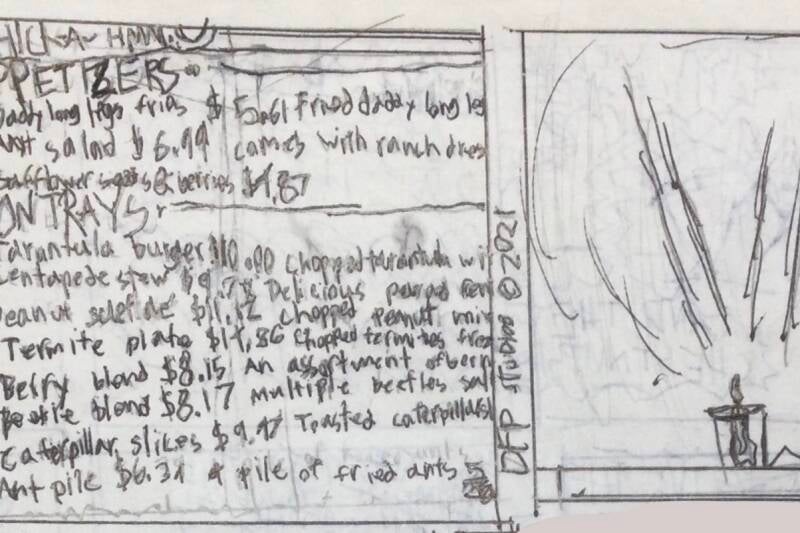 PPETIZERS
Daddy long legs fries $5.61 Fried daddy long leg
Ant salad $6.99 comes with ranch dres
Safflower seeds & berries $4.87
ON TRAYS
Tarantula burger $10.00 Chopped tarantula wi
Centapede stew $9.7 Delicious
peanut $11.12 chopped peanut mix
Termite plate $14.86 Chopped termites
Berry blend $8.15 An assortment of berr
Beetle blend $8.17 Multiple beetles
Caterpillar slices $9.97 Toasted caterpillars
Ant pile $6.31 A pile of fried ants
DFP STUDIOS © 2021